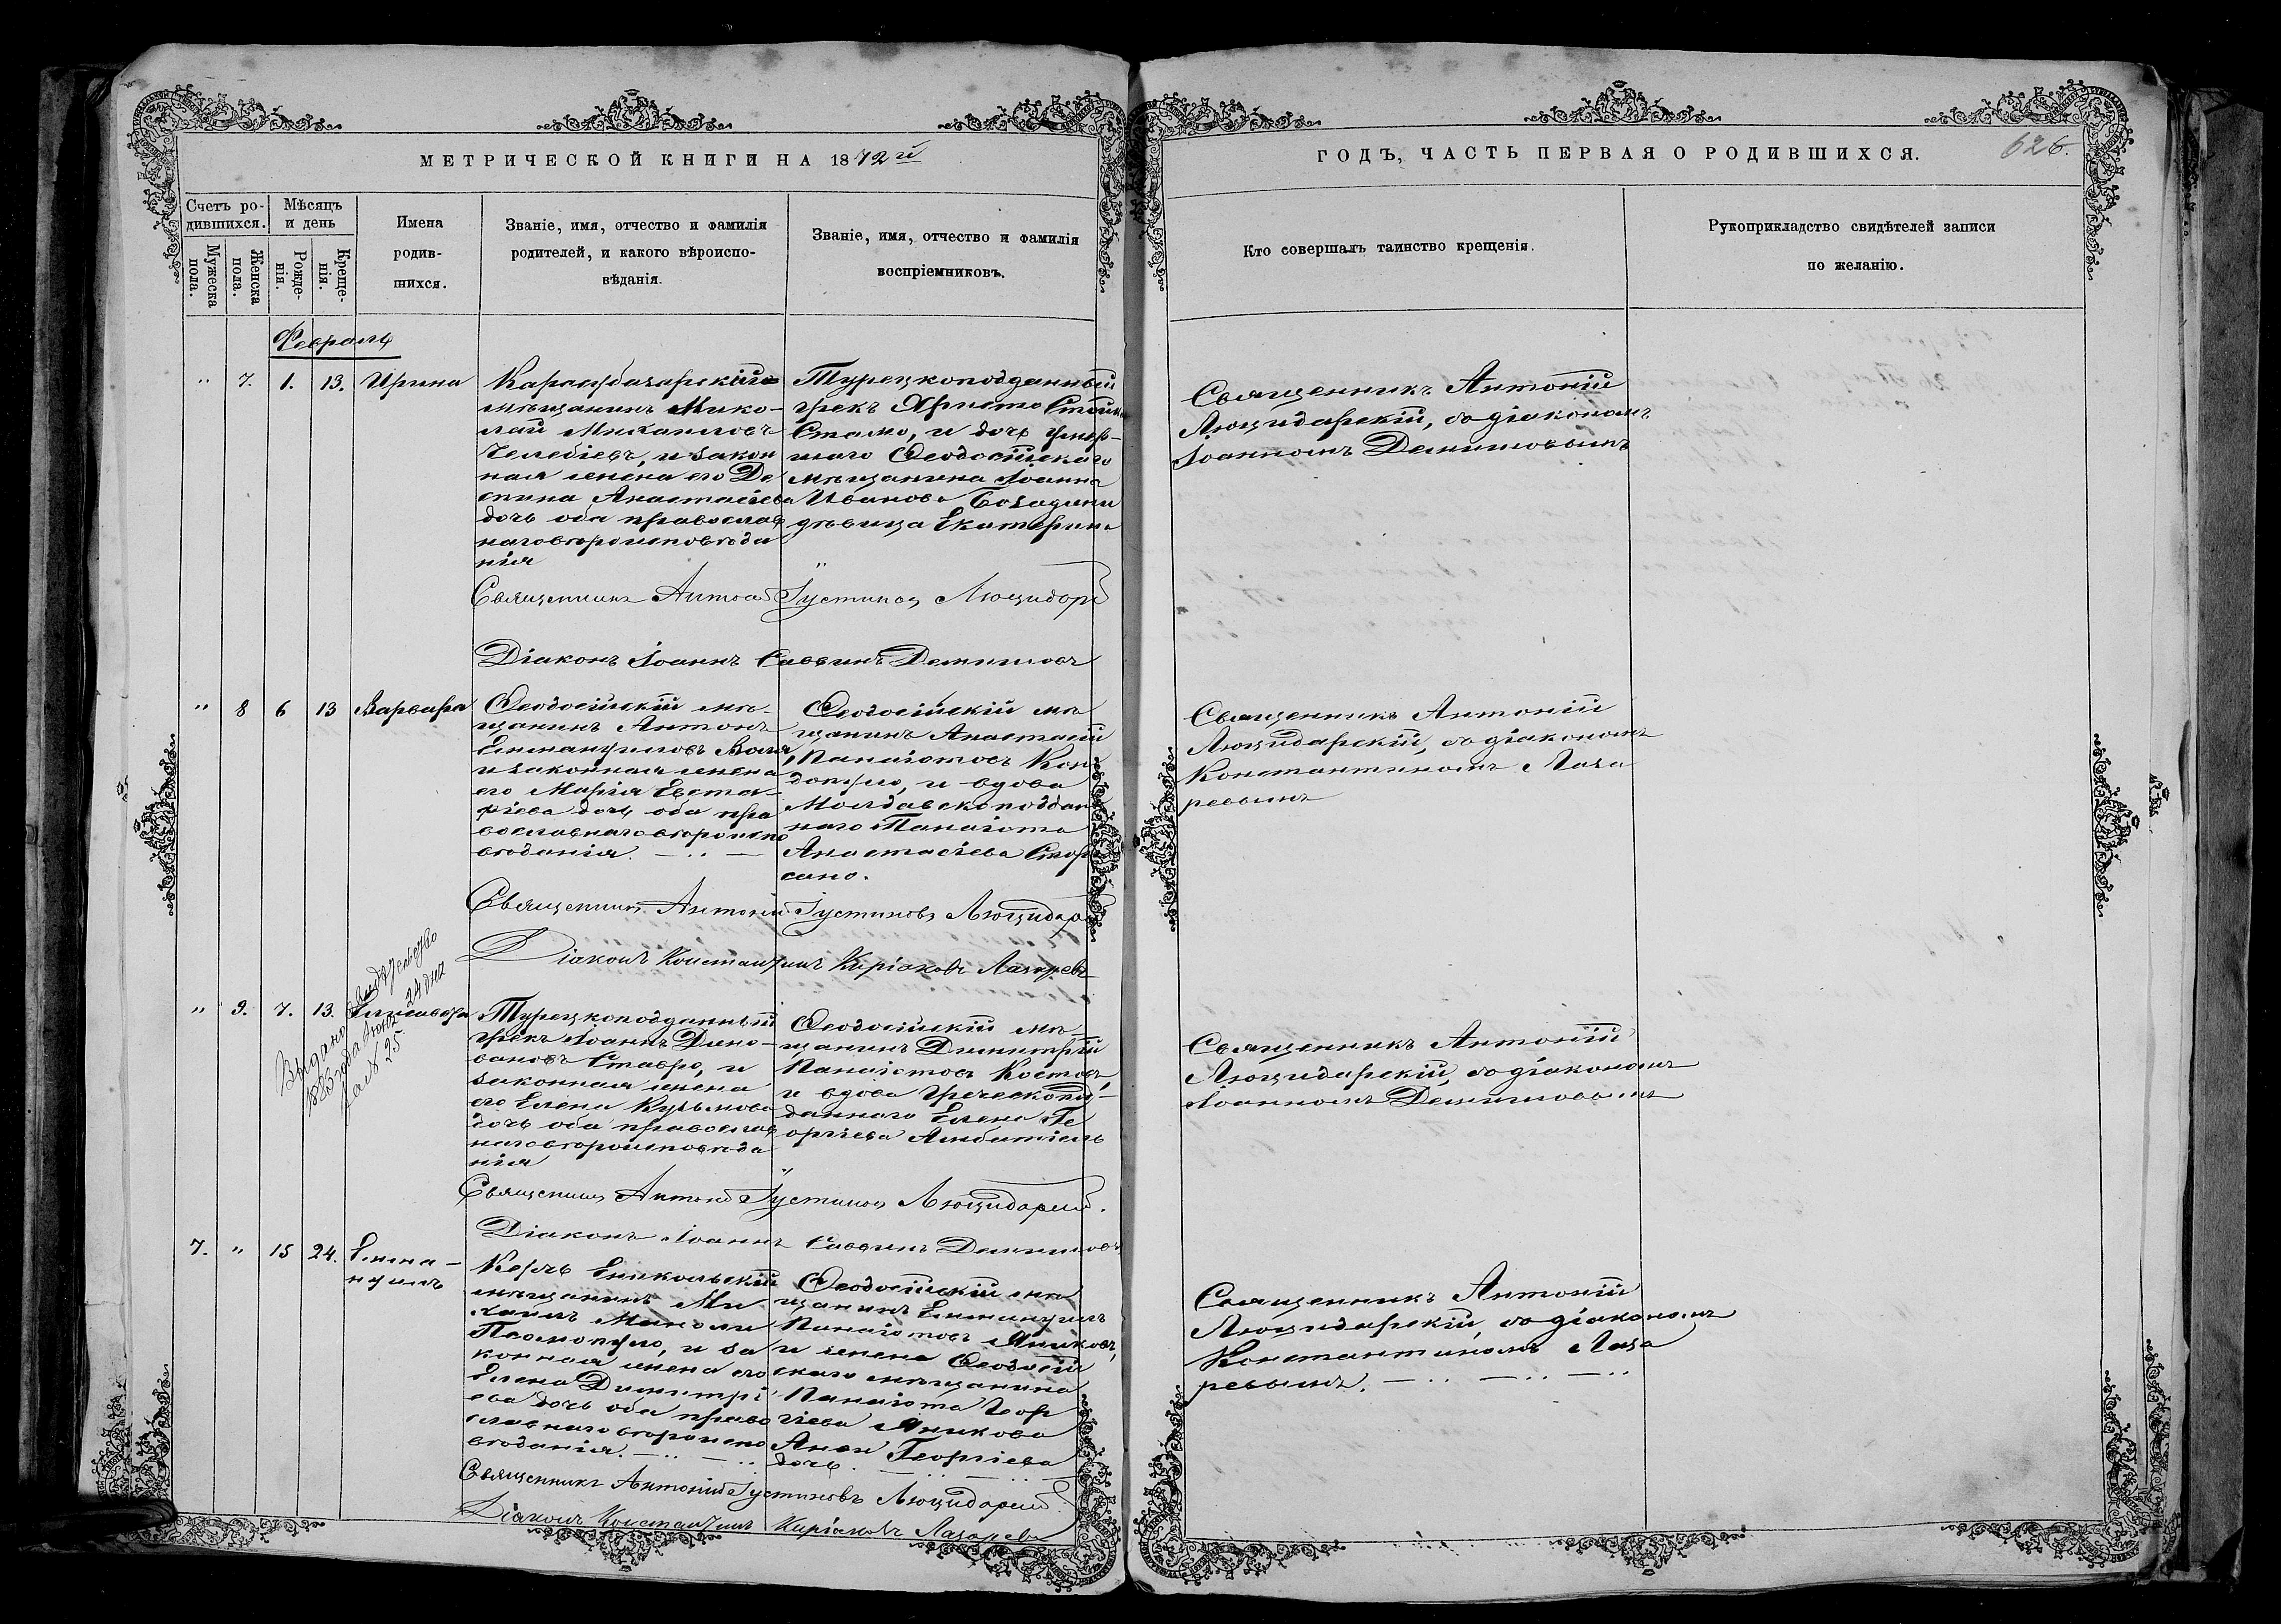 МЕТРИЧЕСКОЙ КНИГИ НА 1872й
ГОДЪ, ЧАСТЬ ПЕРВАЯ О РОДИВШИХСЯ.
626.
Счетъ ро-
дившихся.
Мужеска
пола.
Женска
пола.
Мѣсяцъ
и день
Рожде-
нія.
Креще-
нія.
Имена
родив-
шихся.
Званіе, имя, отчество и фамилія
родителей, и какого вѣроиспо-
вѣданія.
Званіе, имя, отчество и фамилія
воспріемниковъ.
Кто совершалъ таинство крещенія.
Рукоприкладство свидѣтелей записи
по желанію.
Февраль
" 7. 1. 13. Ирина
Карасубазарскій
мѣщанинъ Нико-
лай Михаиловъ
Челебіевъ, и закон
ная жена его Де
спина Анастасіева
дочь оба православ
наго вѣроисповѣда
нія
Турецкоподданный
грекъ Христо
Стамо, и дочь умер-
шаго Ѳеодосійскаго
мѣщанина Іоанна
Иванова
дѣвица Екатерина
Священникъ Антоній
Люцидарскій, съ діакономъ
Іоанномъ Демишовымъ
Священникъ Антоній Іустиновъ Люцидарскій
Діаконъ Іоаннъ Саввинъ Демишовъ
" 8 6 13 Варвара
Ѳеодосійскій мѣ-
щанинъ Антонъ
Еммануиловъ
и законная жена
его Марія Евста-
фіева дочь оба пра
вославнаго вѣроиспо
вѣданія.
Ѳеодосійскій мѣ
щанинъ Анастасій
Панаіотовъ Кон
допуло, и вдова
Молдавскоподдан
наго Панаіота
Анастасіева
Священникъ Антоній
Люцидарскій, съ діакономъ
Константиномъ Лаза
ревымъ
Священникъ Антоній Іустиновъ Люцидарскій
Діаконъ Константинъ Киріаковъ Лазаревъ
Выдано свидѣтельство
24 дня
за № 25
" 9. 7. 13. Елисавета
Турецкоподданный
грекъ Іоаннъ Димо-
вановъ Ставро, и
законная жена
его Елена Кузьмова
дочь оба православ
наго вѣроисповѣда
нія
Ѳеодосійскій мѣ-
щанинъ Димитрій
Панаіотовъ Костовъ,
и вдова Греческопод-
даннаго Елена Ге
оргіева
Священникъ Антоній
Люцидарскій, съ діакономъ
Іоанномъ Демишовымъ
Священникъ Антоній Іустиновъ Люцидарскій.
Діаконъ Іоаннъ Саввинъ Демишовъ
7. " 15 24. Емма-
нуилъ
Керчь Еникольскій
мѣщанинъ Ми
хаилъ Маноли
и за
конная жена его
Елена Димитрі
ева дочь оба право
славнаго вѣроиспо
вѣданія.
Ѳеодосійскій мѣ
щанинъ Еммануилъ
Панаіотовъ Яниковъ,
и жена Ѳеодосій
скаго мѣщанина
Панаіота Геор
гіева Яникова
Анна Георгіева
дочь.
Священникъ Антоній
Люцидарскій, съ діакономъ
Константиномъ Лаза
ревымъ.
Священникъ Антоній Іустиновъ Люцидарскій
Діаконъ Константинъ Киріаковъ Лазаревъ